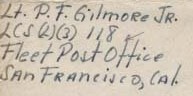 Lt. P.F. Gilmore Jr.
LCS(L)(3) 118
Fleet Post Office
San Francisco, Cal.